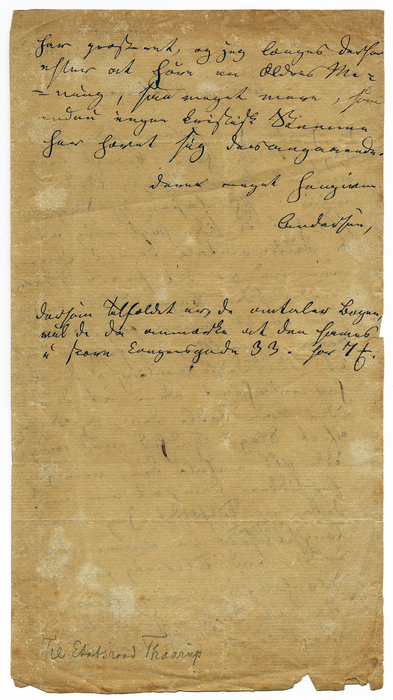 har præsteret, og jeg længes derfor
efter at høre en Ældres Me-
=ning, saa meget mere, som
endnu ingen kritisk Stemme
har hævet sig desangaaende.
deres meget hengivne
Andersen,
dersom tilfældet er, de omtaler Bogen,
vil de da anmærke at den faaes
i store Kongensgade 33. for 7
Til Etatsraad Thaarup